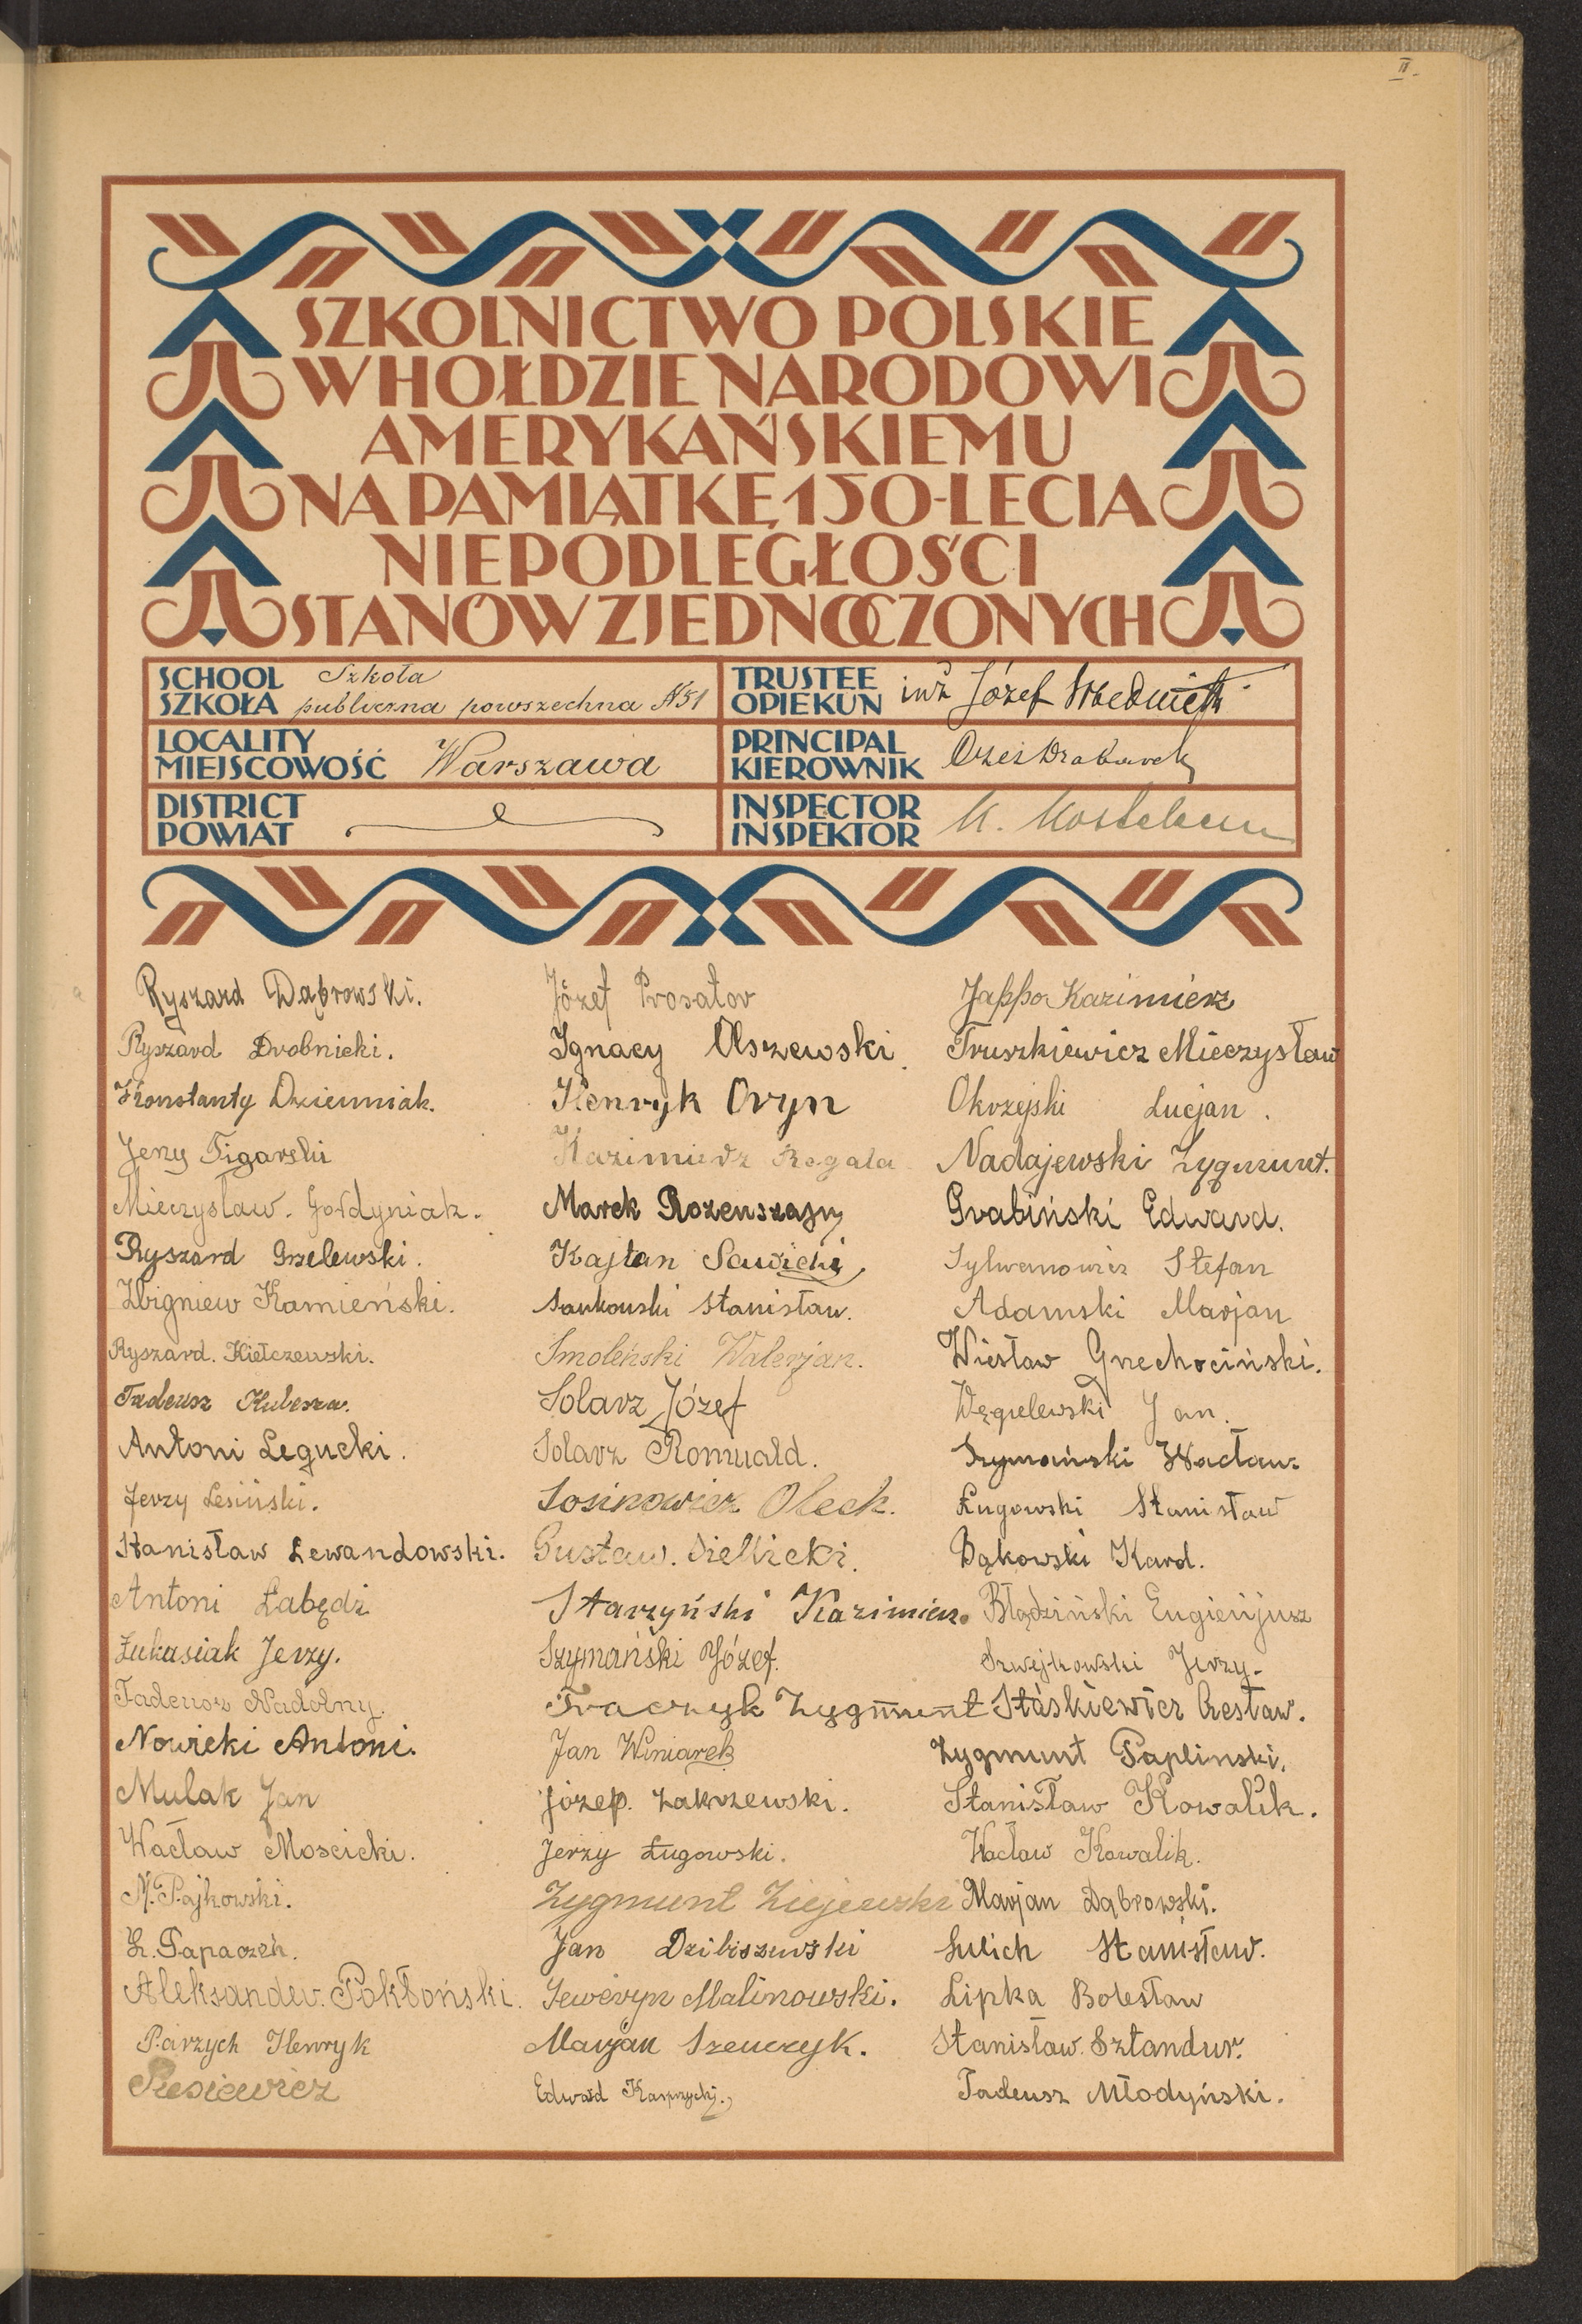 II.
SZKOLNICTWO POLSKIE
W HOŁDZIE NARODOWI
AMERYKAŃSKIEMU
NA PAMIĄTKĘ 150-LECIA
NIEPODLEGŁOŚCI
STANÓW ZJEDNOCZONYCH
SCHOOL
SZKOŁA
Szkoła
publiczna powszechna №51
TRUSTEE
OPIEKUN
inż Józef
LOCALITY
MIEJSCOWOŚĆ
Warszawa
PRINCIPAL
KIEROWNIK
DISTRICT
POWIAT
INSPECTOR
INSPEKTOR
Ryszard Dąbrowski.
Ryszard Drobnicki.
Konstanty Dzienniak.
Jerzy Figarski
Mieczysław. Gołdyniak.
Ryszard Grzelewski.
Zbigniew Kamieński.
Ryszard. Kiełczewski.
Tadeusz Kulesza.
Antoni Legucki.
Jerzy Lesiński.
Stanisław Lewandowski.
Antoni Łabędź
Łukasiak Jerzy.
Tadeusz Nadolny.
Nowicki Antoni.
Mulak Jan
Wacław Moscicki.
M. Pajkowski.
Papaczek.
Aleksander. Pokłoński.
Parzych Henryk
Józef Prosator
Ignacy Olszewski
Henryk Oryn
Kazimierz Rogala
Marek Rozenszajn
Kajtan Sawicki
Sankowski Stanisław.
Smoleński Walerjan.
Solarz Józef
Solarz Romuald.
Sosinowicz Oleck.
Gustaw. Siellicki.
Starzyński Kazimierz.
Szymański Józef.
Traczyk Zygmunt
Jan Winiarek
Józef. Zakrzewski.
Jerzy Ługowski.
Zygmunt Ziejewski
Jan Dzibiszewski
Seweryn Malinowski.
Marjan Szewczyk.
Edward Kasprzycki.
Jappo Kazimierz
Truszkiewicz Mieczysław
Okrzejski Lucjan.
Nadajewski Zygmunt.
Grabiński Edward.
Sylwanowicz Stefan
Adamski Marjan
Wiesław Grzechociński.
Węgielewski Jan.
Szymański Wacław.
Ługowski Stanisław
Bąkowski Karol.
Błądziński Eugienjusz
Szwejkowski Jerzy.
Stáskiewicz Czesław.
Zygmunt Paplinski.
Stanisław Kowalik.
Wacław Kowalik.
Marjan Dąbrowski.
Sulich Stanisław.
Lipka Bolesław
Stanisław. Sztandur.
Tadeusz Młodyński.